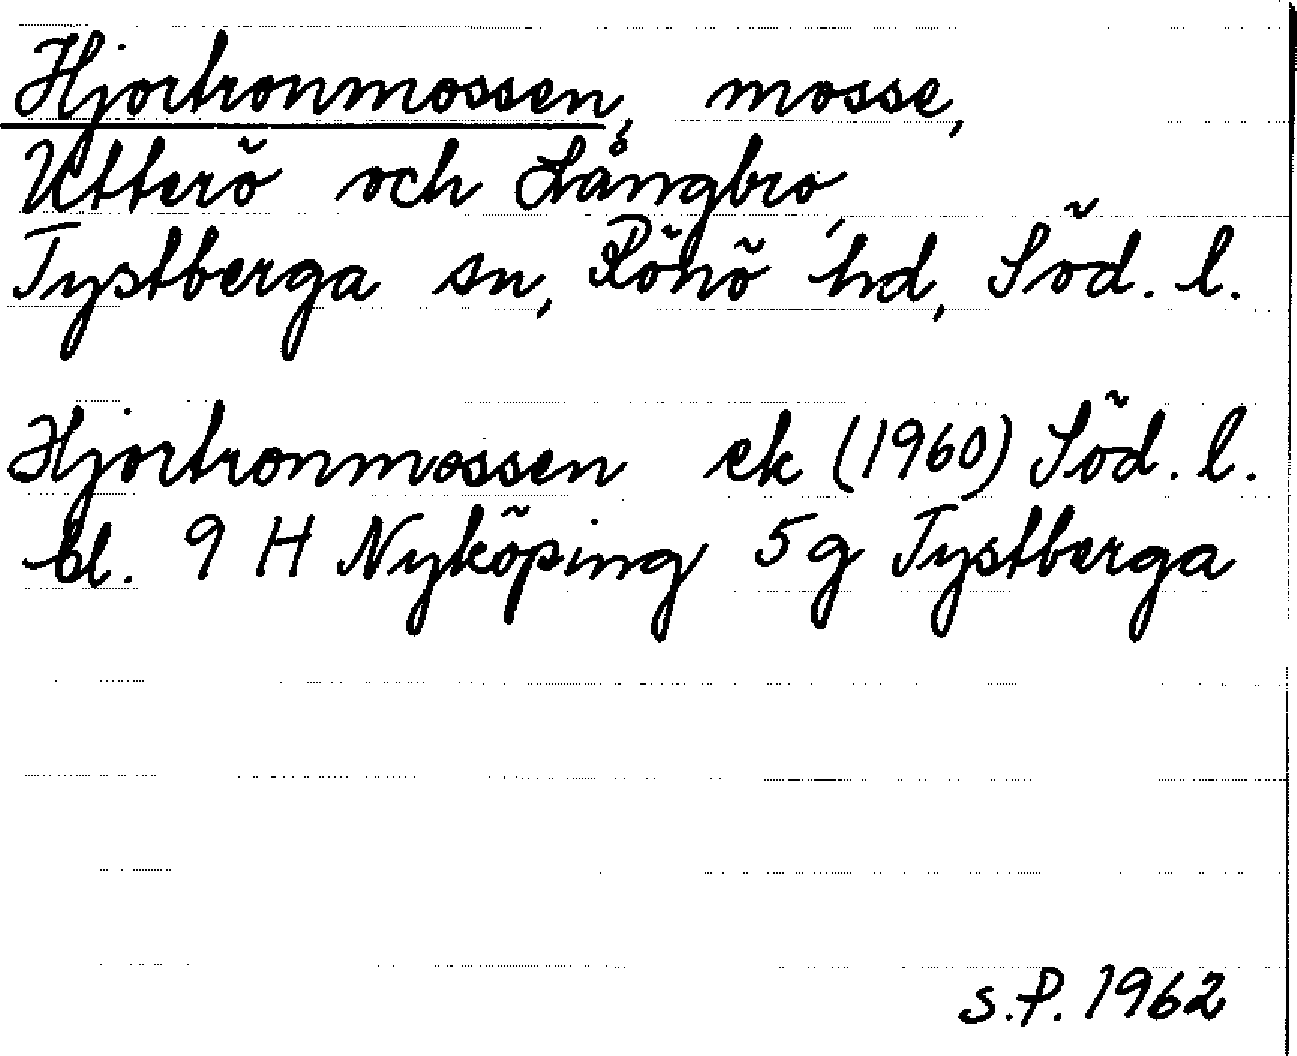 Hjortronmossen, mosse,
Utterö och Långbro,
Tystberga sn, Rönö hd, Söd. l.
Hjortronmossen ek (1960) Söd. l.
bl. 9 H Nyköping 5 g Tystberga
S.P. 1962